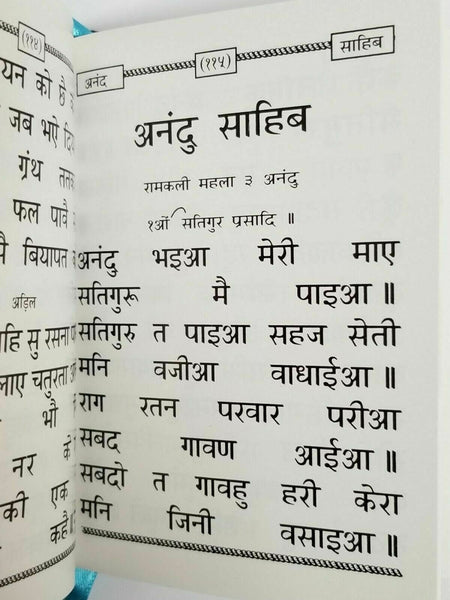 (११४)
यन को छै
जब भऐ
ग्रंथ
फल पावै
बियापत
अड़िल
सु रसना
चतुरता
भौ
नर के
की एक
कहै॥
अनंद (११५) साहिब
अनंदु साहिब
रामकली महला ३ अनंदु
१ओं सतिगुर प्रसादि ॥
अनंदु भइआ मेरी माए
सतिगुरू मै पाइआ ॥
सतिगुरु त पाइआ सहज सेती
मनि वजीआ वाधाईआ ॥
राग रतन परवार परीआ
सबद गावण आईआ ॥
सबदो त गावहु हरी केरा
मनि जिनी वसाइआ ॥